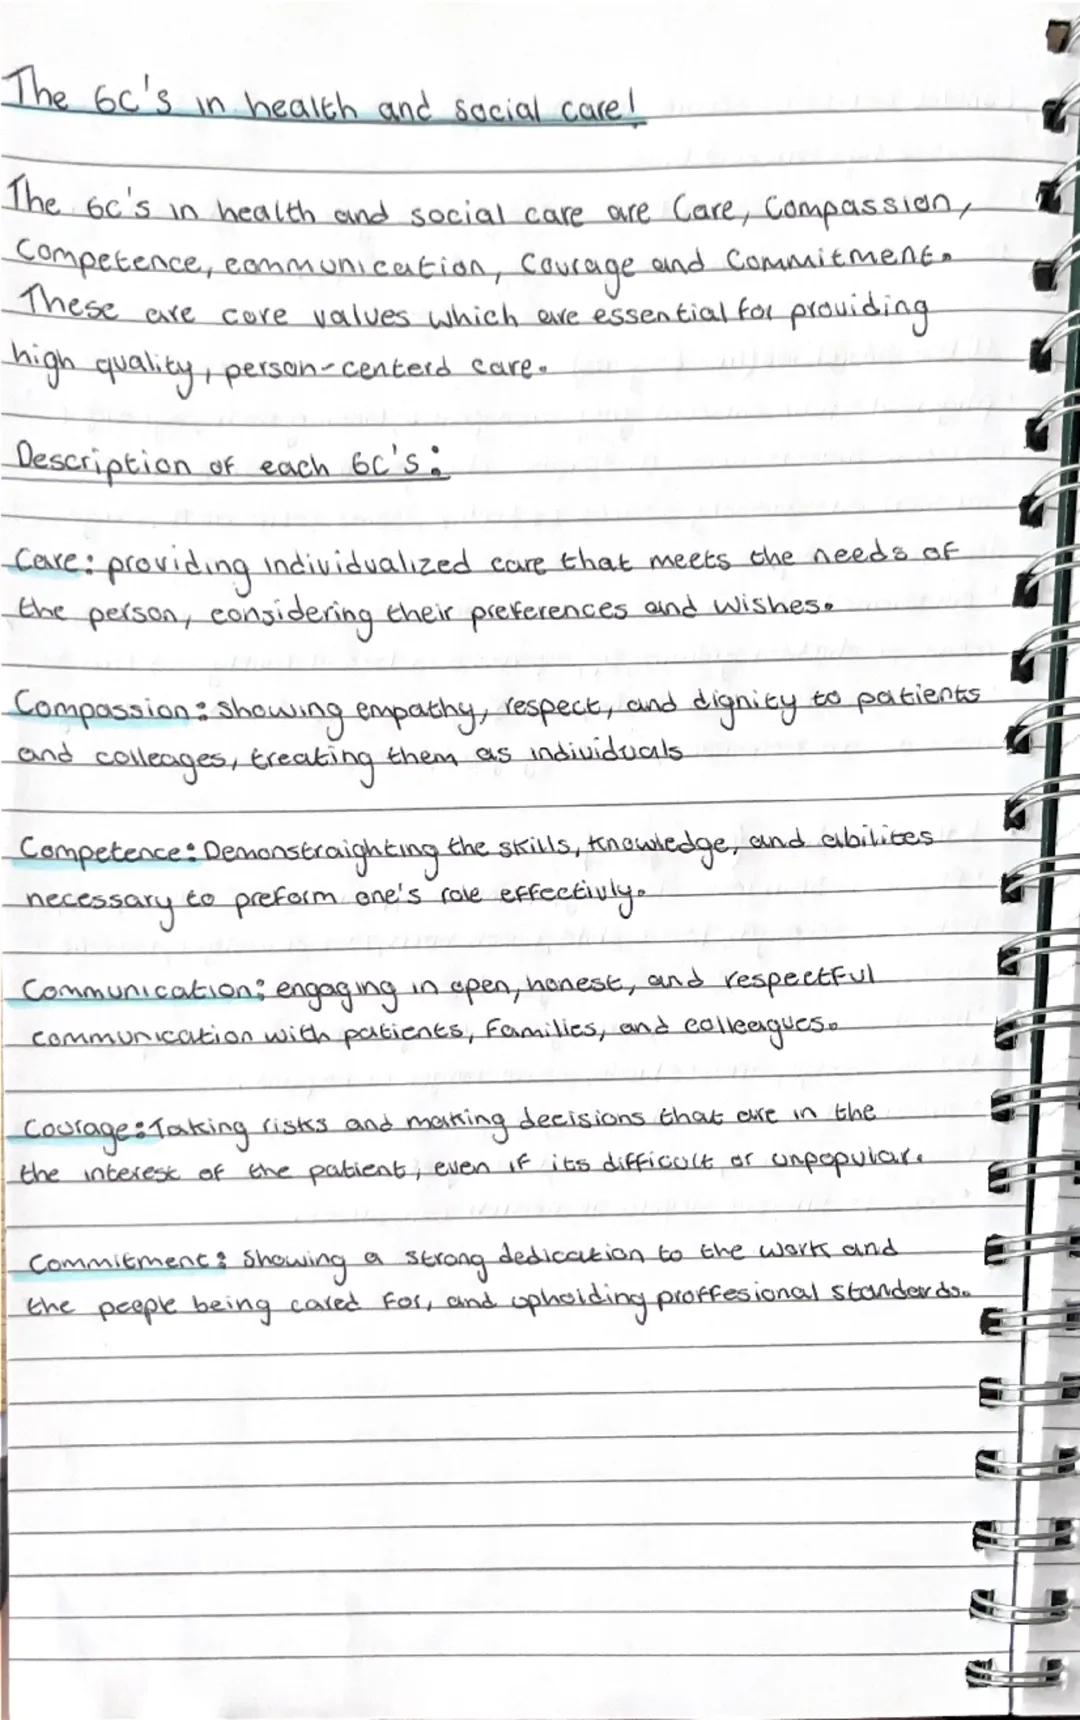 The 6C's in health and social care!
The 6c's in health and social care are Care, Compassion,
Competence, communication, Courage and Commitment.
These are core values which are essential for providing
high quality, person-centerd care.
Description of each 6C's:
Care: providing individualized care that meets the needs of
the person, considering their preferences and wishes.
Compassion: Showing empathy, respect, and dignity to patients
and colleages, treating them as individuals
Competence: Demonstraighting the skills, knowledge, and abilites
necessary to preform one's role effectivly.
Communication: engaging in open, honest, and respectful
communication with patients, families, and colleagues.
Courage: Taking risks and making decisions that are in the
the interest of the patient, even if its difficult or unpopular.
Commitment: Showing a strong dedication to the work and
the people being cared for, and upholding proffesional standards.